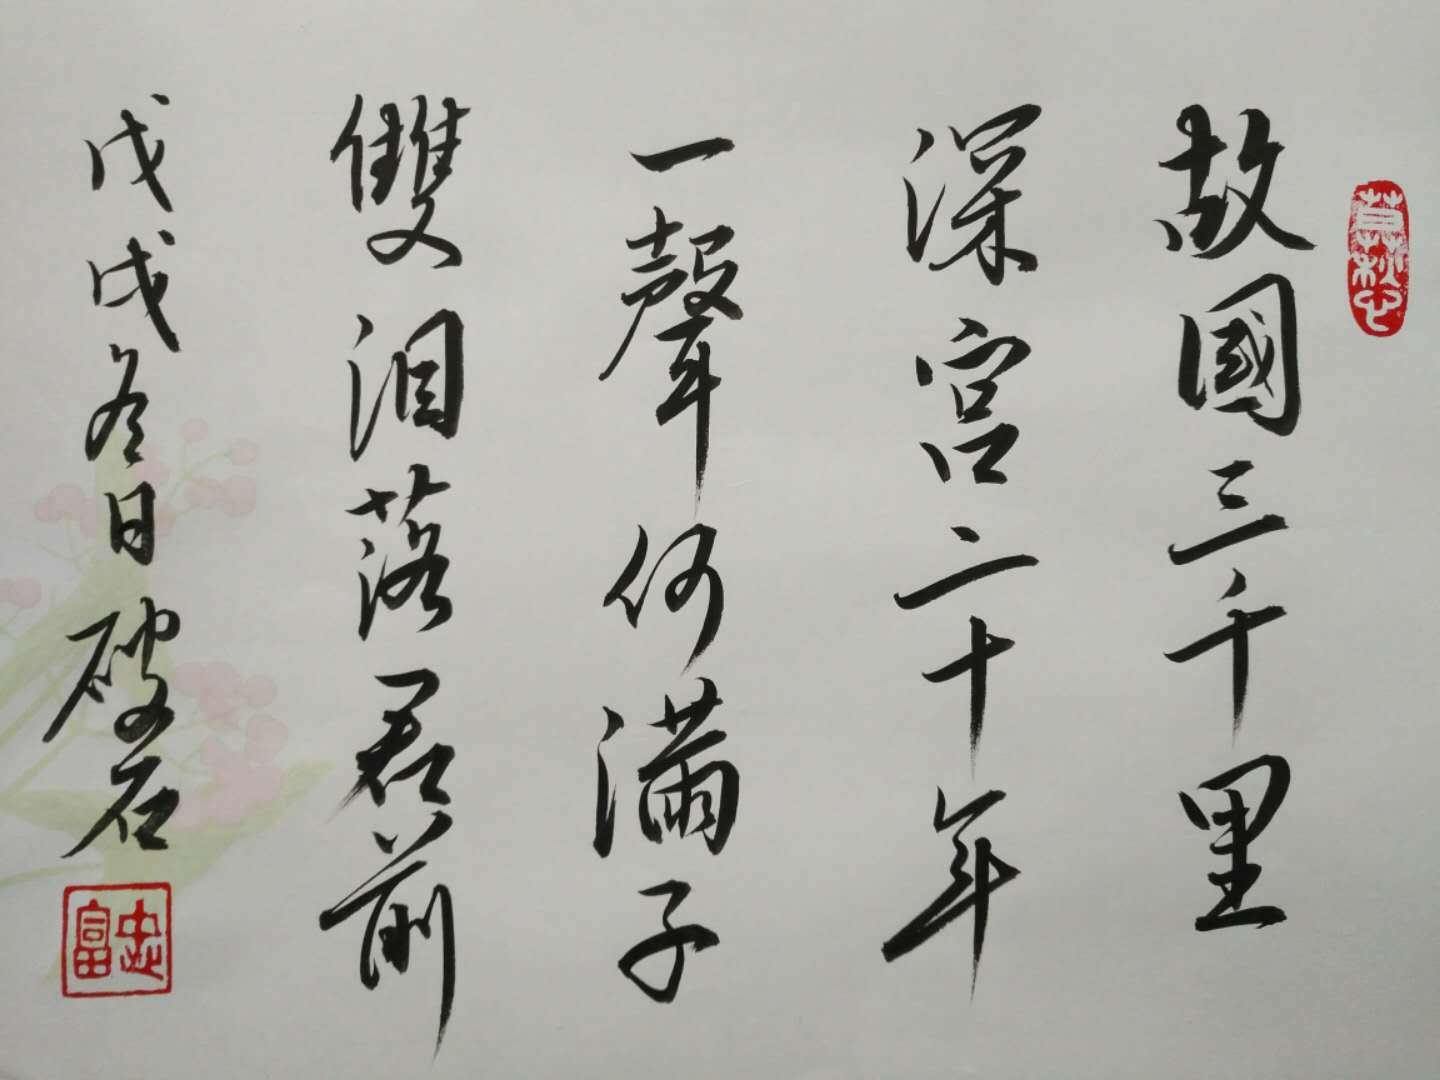 故國三千里
深宮二十年
一聲何滿子
雙泪落君前
戊戌冬日破石
忠富